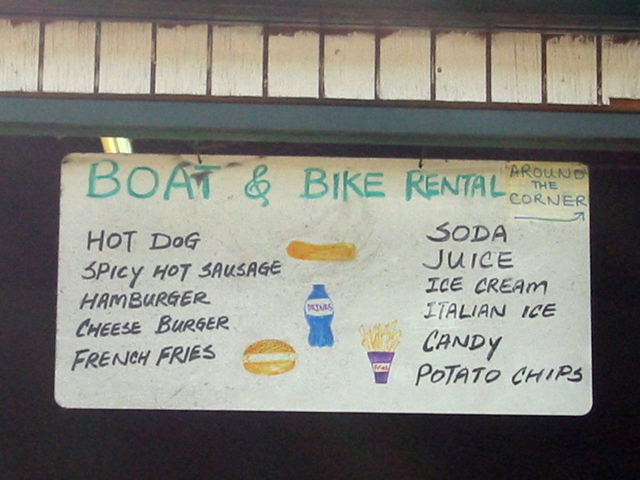 BOAT & BIKE RENTAL
AROUND
THE
CORNER
HOT DOG
SPICY HOT SAUSAGE
HAMBURGER
CHEESE BURGER
FRENCH FRIES
DRINKS
SODA
JUICE
ICE CREAM
ITALIAN ICE
CANDY
POTATO CHIPS